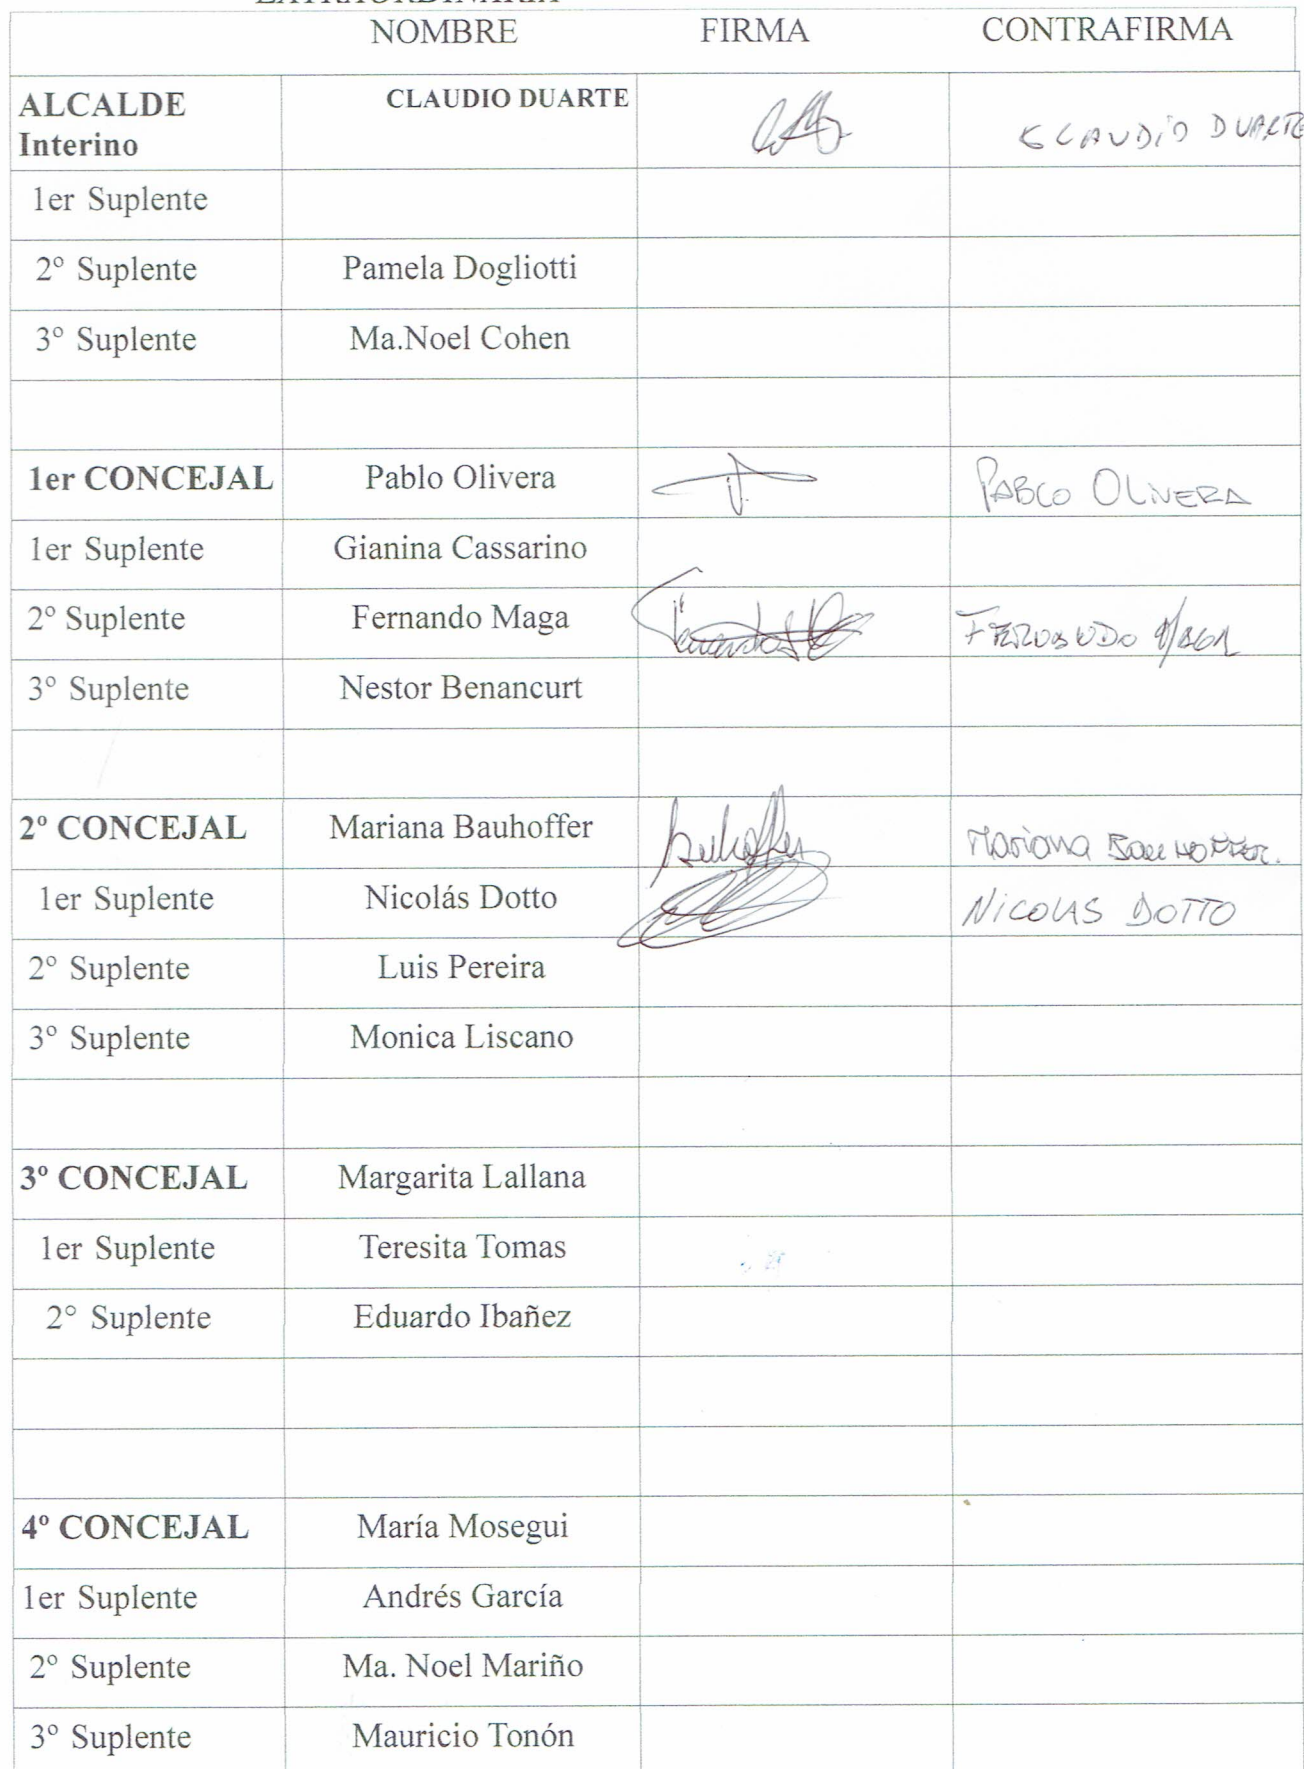 EXTRAORDINARIA
NOMBRE FIRMA CONTRAFIRMA
ALCALDE Interino CLAUDIO DUARTE CLAUDIO DUARTE
1er Suplente
2º Suplente Pamela Dogliotti
3º Suplente Ma.Noel Cohen
1er CONCEJAL Pablo Olivera PABLO OLIVERA
1er Suplente Gianina Cassarino
2º Suplente Fernando Maga FERNANDO MAGA
3º Suplente Nestor Benancurt
2º CONCEJAL Mariana Bauhoffer Bauhoffer Mariana BAUHOFFER.
1er Suplente Nicolás Dotto NICOLAS DOTTO
2º Suplente Luis Pereira
3º Suplente Monica Liscano
3º CONCEJAL Margarita Lallana
1er Suplente Teresita Tomas
2° Suplente Eduardo Ibañez
4º CONCEJAL María Mosegui
1er Suplente Andrés García
2º Suplente Ma. Noel Mariño
3º Suplente Mauricio Tonón